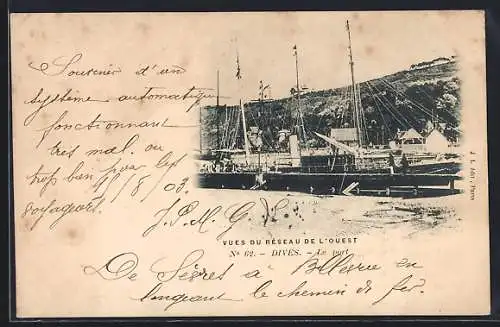 Souvenir d'un
système automatique
fonctionnant
très mal. ou
trop bien par les
voyageurs. 11/8/03
J. P. M. G.
VUES DU RÉSEAU DE L'OUEST
Nº 62. - DIVES. - Le port
De Sèvres à en
longeant le chemin de fer.